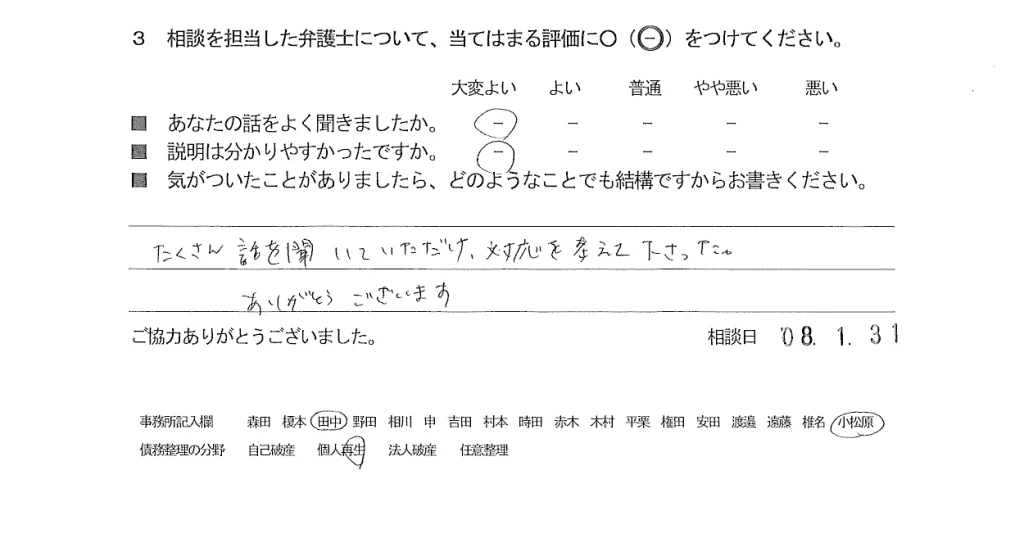 3 相談を担当した弁護士について、当てはまる評価に○（㊀）をつけてください。
大変よい よい 普通 やや悪い 悪い
■ あなたの話をよく聞きましたか。 － － － － －
■ 説明は分かりやすかったですか。 － － － － －
■ 気がついたことがありましたら、どのようなことでも結構ですからお書きください。
たくさん 話を聞いていただけ、対応を考えて下さった。
ありがとうございます
ご協力ありがとうございました。 相談日 '08. 1. 31
事務所記入欄 森田 榎本 田中 野田 相川 申 吉田 村本 時田 赤木 木村 平栗 権田 安田 渡邉 遠藤 椎名 小松原
債務整理の分野 自己破産 個人再生 法人破産 任意整理